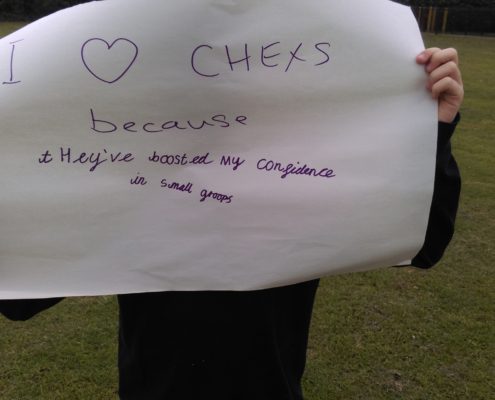 I ♡ CHEXS
because
tHey've boosted My confidence
in small groops